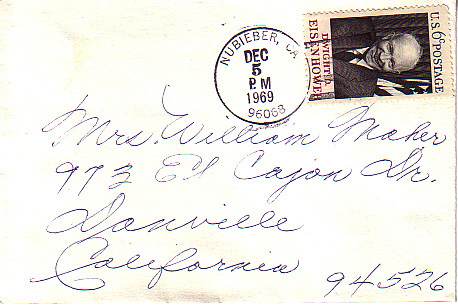 NUBIEBER, CA
DEC
5
PM
1969
96068
U.S. 6c POSTAGE
DWIGHT D.
EISENHOWER
Mrs. William Maher
973 El Cajon Dr.
Danville
California
94526